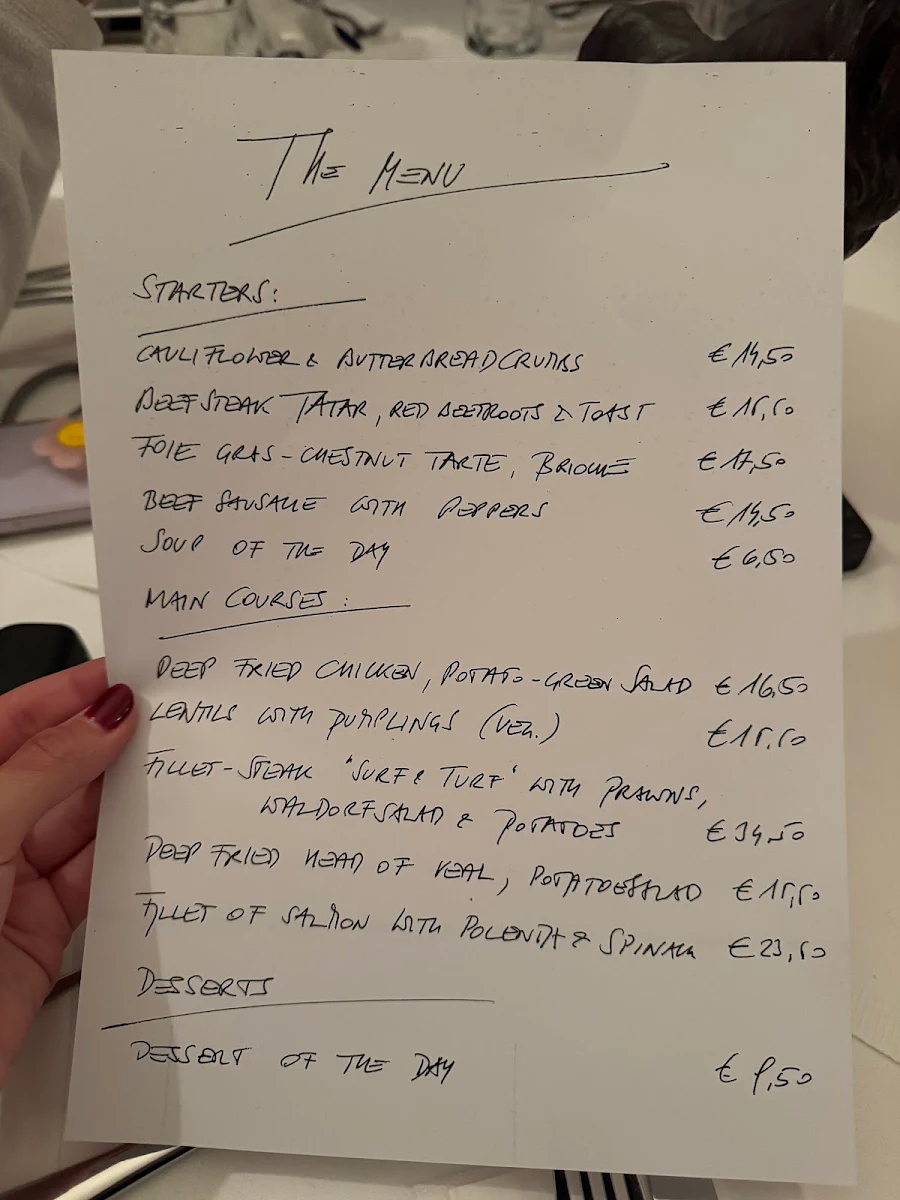 THE MENU
STARTERS:
CAULIFLOWER & BUTTERBREADCRUMBS € 14,50
BEEFSTEAK TATAR, RED BEETROOTS & TOAST € 15,50
FOIE GRAS-CHESTNUT TARTE, BRIOCHE € 17,50
BEEF SAUSAGE WITH PEPPERS € 14,50
SOUP OF THE DAY € 6,50
MAIN COURSES:
DEEP FRIED CHICKEN, POTATO-GREEN SALAD € 16,50
LENTILS WITH DUMPLINGS (VEG.) € 15,50
FILLET-STEAK "SURF & TURF" WITH PRAWNS,
WALDORFSALAD & POTATOES € 34,50
DEEP FRIED HEAD OF VEAL, POTATOESALAD € 15,50
FILLET OF SALMON WITH POLENTA & SPINACH € 23,50
DESSERTS
DESSERT OF THE DAY € 9,50